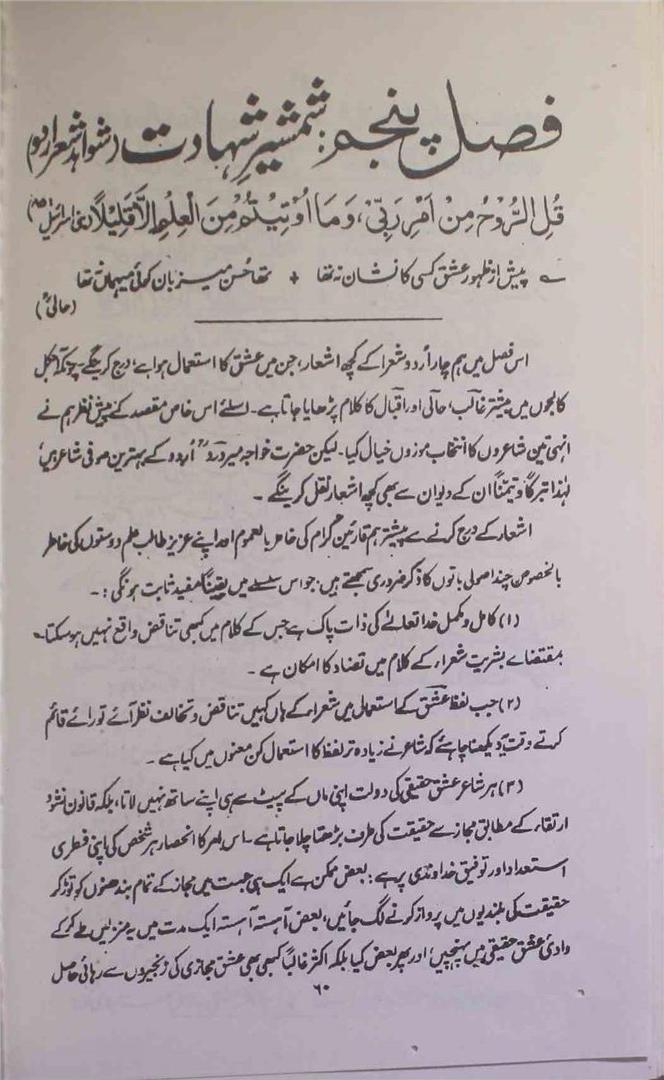 فصل پنجم: شمشیرِ شہادت (شواہدِ شعراء دوم)
قُلِ الرُّوْحُ مِنْ اَمْرِ رَبِّیْ، وَمَا اُوْتِیْتُمْ مِنَ الْعِلْمِ اِلَّا قَلِیْلًا (بنی اسرائیل)
؎ پیش از ظہورِ عشق کسی کا نشان نہ تھا + تھا حُسن میزبان کوئی میہمان نہ تھا
(حالیؒ)
اس فصل میں ہم چار اُردو شعرا کے کچھ اشعار، جن میں عشق کا استعمال ہوا ہے، درج کرینگے۔ چونکہ آجکل
کالجوں میں بیشتر غالب، حالی اور اقبال کا کلام پڑھایا جاتا ہے۔ اسلئے اس خاص مقصد کے پیش نظر ہم نے
انہی تین شاعروں کا انتخاب موزوں خیال کیا۔ لیکن حضرت خواجہ میر دردؒ اُردو کے بہترین صوفی شاعر ہیں،
لہٰذا تبرکاً و تیمّناً ان کے دیوان سے بھی کچھ اشعار نقل کرینگے۔
اشعار کے درج کرنے سے پیشتر ہم قارئین کرام کی خاطر بالعموم اور اپنے عزیز طالب علم دوستوں کی خاطر
بالخصوص چند اصولی باتوں کا ذکر ضروری سمجھتے ہیں: جو اس سلسلے میں یقیناً مفید ثابت ہونگی:۔
(۱) کامل و مکمل خدا تعالےٰ کی ذات پاک ہے جس کے کلام میں کبھی تناقض واقع نہیں ہو سکتا۔
بمقتضائے بشریت شعراء کے کلام میں تضاد کا امکان ہے۔
(۲) جب لفظ عشق کے استعمال میں شعراء کے ہاں کہیں تناقض و تخالف نظر آئے تو رائے قائم
کرتے وقت یہ دیکھنا چاہئے کہ شاعر نے زیادہ تر لفظ کا استعمال کن معنوں میں کیا ہے۔
(۳) ہر شاعر عشقِ حقیقی کی دولت اپنی ماں کے پیٹ سے ہی اپنے ساتھ نہیں لاتا، بلکہ قانون نشو و
ارتقاء کے مطابق مجاز سے حقیقت کی طرف بڑھتا چلا جاتا ہے۔ اس امر کا انحصار ہر شخص کی اپنی فطری
استعداد اور توفیقِ خداوندی پر ہے: بعض ممکن ہے ایک ہی جست میں مجاز کے تمام بندھنوں کو توڑ کر
حقیقت کی بلندیوں میں پرواز کرنے لگ جائیں، بعض آہستہ آہستہ ایک مدت میں یہ منزلیں طے کر کے
وادئ عشق حقیقی میں پہنچیں؛ اور پھر بعض کیا بلکہ اکثر غالباً کبھی بھی عشق مجازی کی زنجیروں سے رہائی حاصل
۶۰